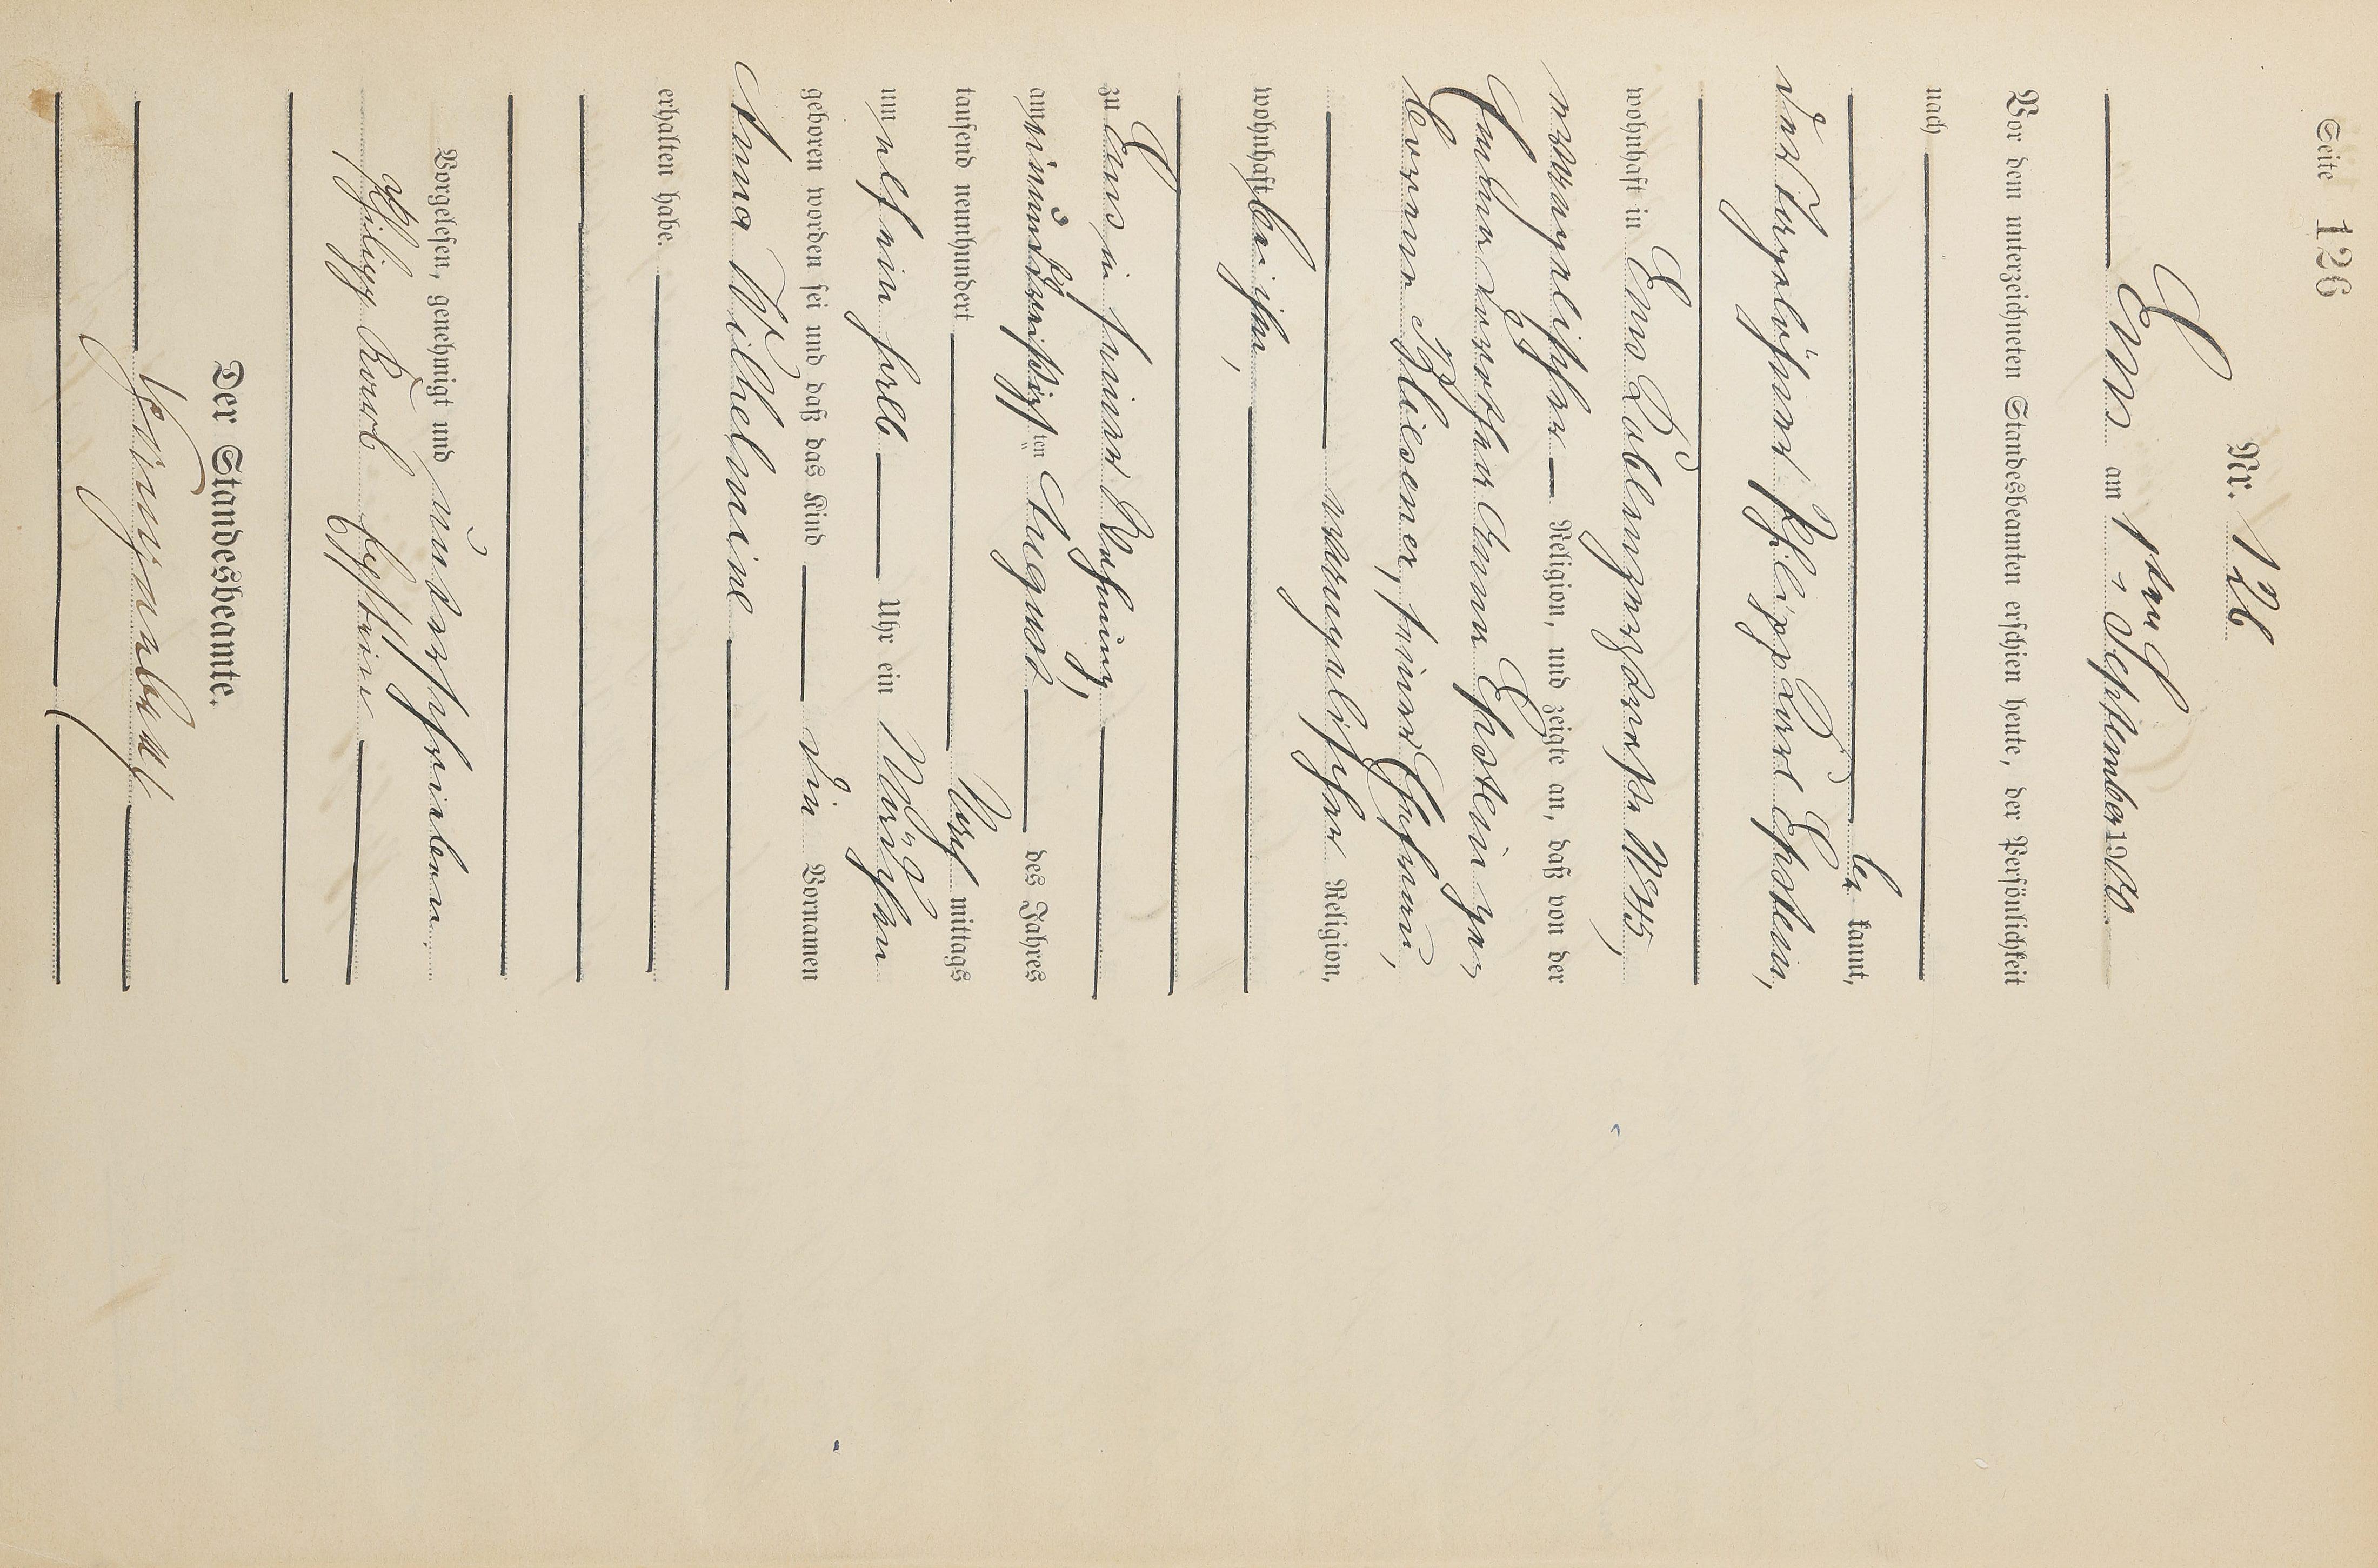 Seite 126
Nr. 126.
Ems am 1ten September 1900.
Vor dem unterzeichneten Standesbeamten erschien heute, der Persönlichkeit
nach
be kannt,
der Tagelöhner Philipp Karl Epstein,
wohnhaft in Ems Coblenzerstraße No 45,
evangelischer Religion, und zeigte an, daß von der
Emma Dorothea Anna Epstein ge-
borene, seiner Ehefrau,
evangelischer Religion,
wohnhaft bei ihm,
zu Ems in seiner Wohnung,
am einunddreißigsten August des Jahres
tausend neunhundert mittags
um elf ein halb Uhr ein Mädchen
geboren worden sei und daß das Kind die Vornamen
Anna Wilhelmine
erhalten habe.
Vorgelesen, genehmigt und unterschrieben.
Philipp Karl Epstein
Der Standesbeamte.